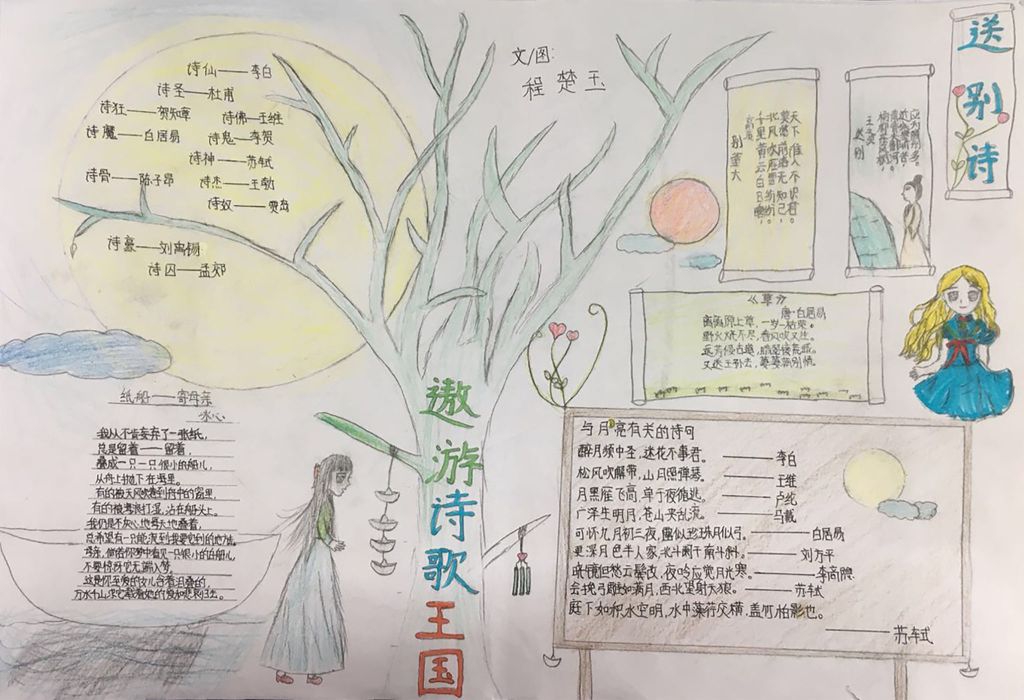 文/图:
程楚玉
送别诗
诗仙——李白
诗圣——杜甫
诗狂——贺知章
诗佛——王维
诗魔——白居易
诗鬼——李贺
诗神——苏轼
诗骨——陈子昂
诗杰——王勃
诗奴——贾岛
诗豪——刘禹锡
诗囚——孟郊
别董大
高适
千里黄云白日曛,
北风吹雁雪纷纷。
莫愁前路无知己,
天下谁人不识君。
送别
王之涣
《草》
唐·白居易
离离原上草,一岁一枯荣。
野火烧不尽,春风吹又生。
远芳侵古道,晴翠接荒城。
又送王孙去,萋萋满别情。
纸船——寄母亲
冰心
我从不肯妄弃了一张纸,
总是留着——留着,
叠成一只一只很小的船儿,
从舟上抛下在海里。
有的被天风吹卷到舟中的窗里,
有的被海浪打湿,沾在船头上。
我仍是不灰心地每天地叠着,
总希望有一只能流到我要它到的地方。
母亲,倘若你梦中看见一只很小的白船儿,
不要惊讶它无端入梦。
这是你至爱的女儿含着泪叠的,
万水千山,求它载着她的爱和悲哀归去。
遨游诗歌王国
与月亮有关的诗句
醉月频中圣,迷花不事君。——李白
松风吹解带,山月照弹琴。——王维
月黑雁飞高,单于夜遁逃。——卢纶
广泽生明月,苍山夹乱流。——马戴
可怜九月初三夜,露似珍珠月似弓。——白居易
更深月色半人家,北斗阑干南斗斜。——刘方平
晓镜但愁云鬓改,夜吟应觉月光寒。——李商隐
会挽弓雕如满月,西北望射天狼。——苏轼
庭下如积水空明,水中藻荇交横,盖竹柏影也。
——苏轼